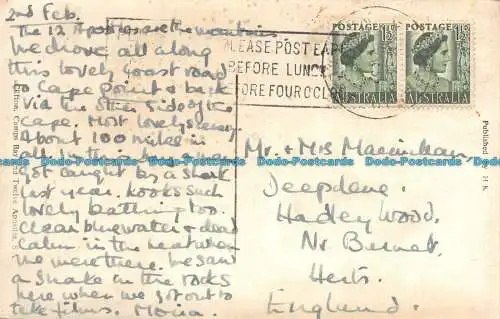 2nd Feb.
The 12 Apostles are the mountains
We drove all along
this lovely coast road
to Cape Point & back
via the other side of the
Cape. Most lovely scenery.
About 100 miles in
all.
got caught by a shark
last year. Looks such
lovely bathing too.
Clear blue water & dead
calm in the heat when
we were there. We saw
a snake in the rocks
here when we got out to
take films. Moira.
PLEASE POST EARLY
BEFORE LUNCH
BEFORE FOUR O'CLOCK
POSTAGE 1½D
AUSTRALIA
POSTAGE 1½D
AUSTRALIA
Mr. & Mrs
Deepdene,
Hadley Wood,
Nr Barnet,
Herts.
England.
Clifton, Camps Bay and Twelve Apostles
Published
H.K.
Dodo-Postcards
Dodo-Postcards
Dodo-Postcards
Dodo-Postcards
Dodo-Postcards